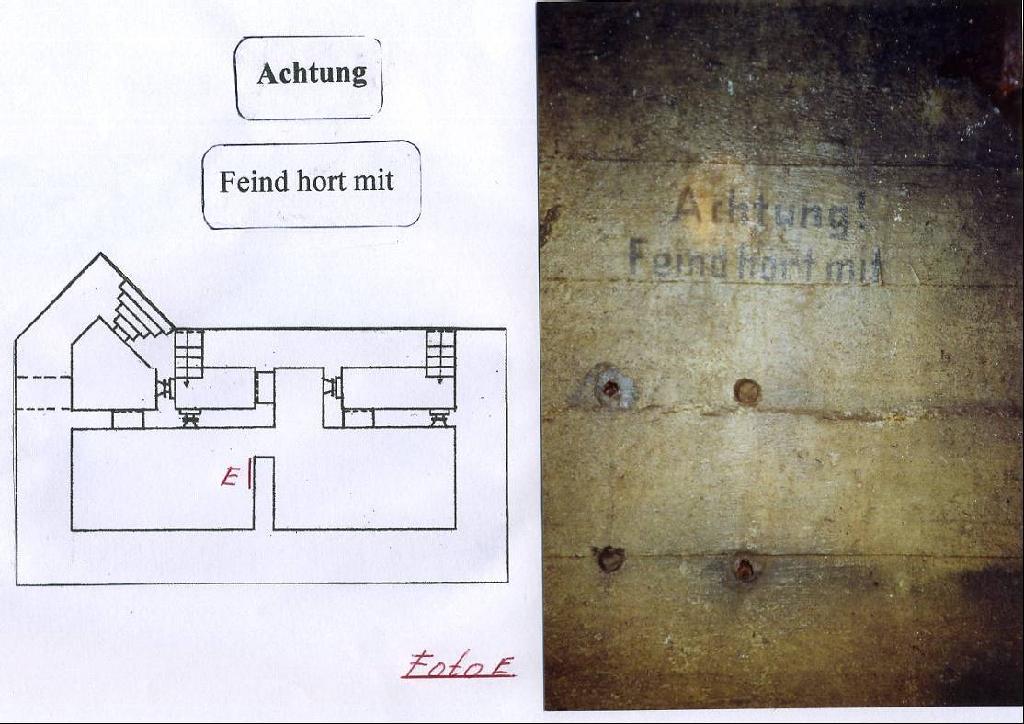 Achtung
Feind hort mit
E
Foto E
Achtung!
Feind hort mit